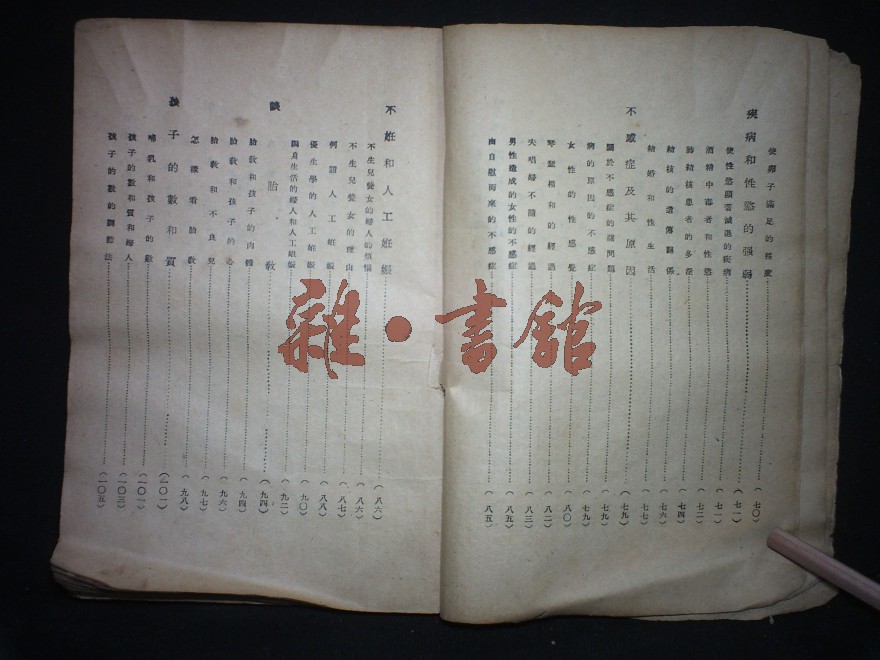 使卵子滿足的程度……(七〇)
疾病和性慾的强弱……(七一)
使性慾顯著減退的疾病……(七一)
酒精中毒者和性慾……(七二)
肺結核患者的多淫……(七四)
結核的遺傳關係……(七六)
結婚和性生活……(七七)
不感症及其原因……(七九)
關於不感症的諸問題……(七九)
病的原因的不感症……(七九)
女性的性感覺……(八〇)
琴瑟相和的經過……(八二)
夫唱婦不隨的經過……(八三)
男性造成的女性的不感症……(八五)
由自慰而來的不感症……(八五)
不妊和人工妊娠……(八六)
不生兒養女的婦人的煩惱……(八六)
不生兒養女的理由……(八七)
何謂人工妊娠……(八八)
優生學的人工妊娠……(九〇)
獨身生活的婦人和人工妊娠……(九二)
談胎教……(九四)
胎教和孩子的肉體……(九四)
胎教和孩子的心……(九六)
胎教和不良兒……(九七)
怎樣看胎教……(九八)
孩子的數和質……(一〇一)
哺乳和孩子的數……(一〇一)
孩子的數和質和婦人……(一〇三)
孩子的數的調節法……(一〇五)
雜·書舘